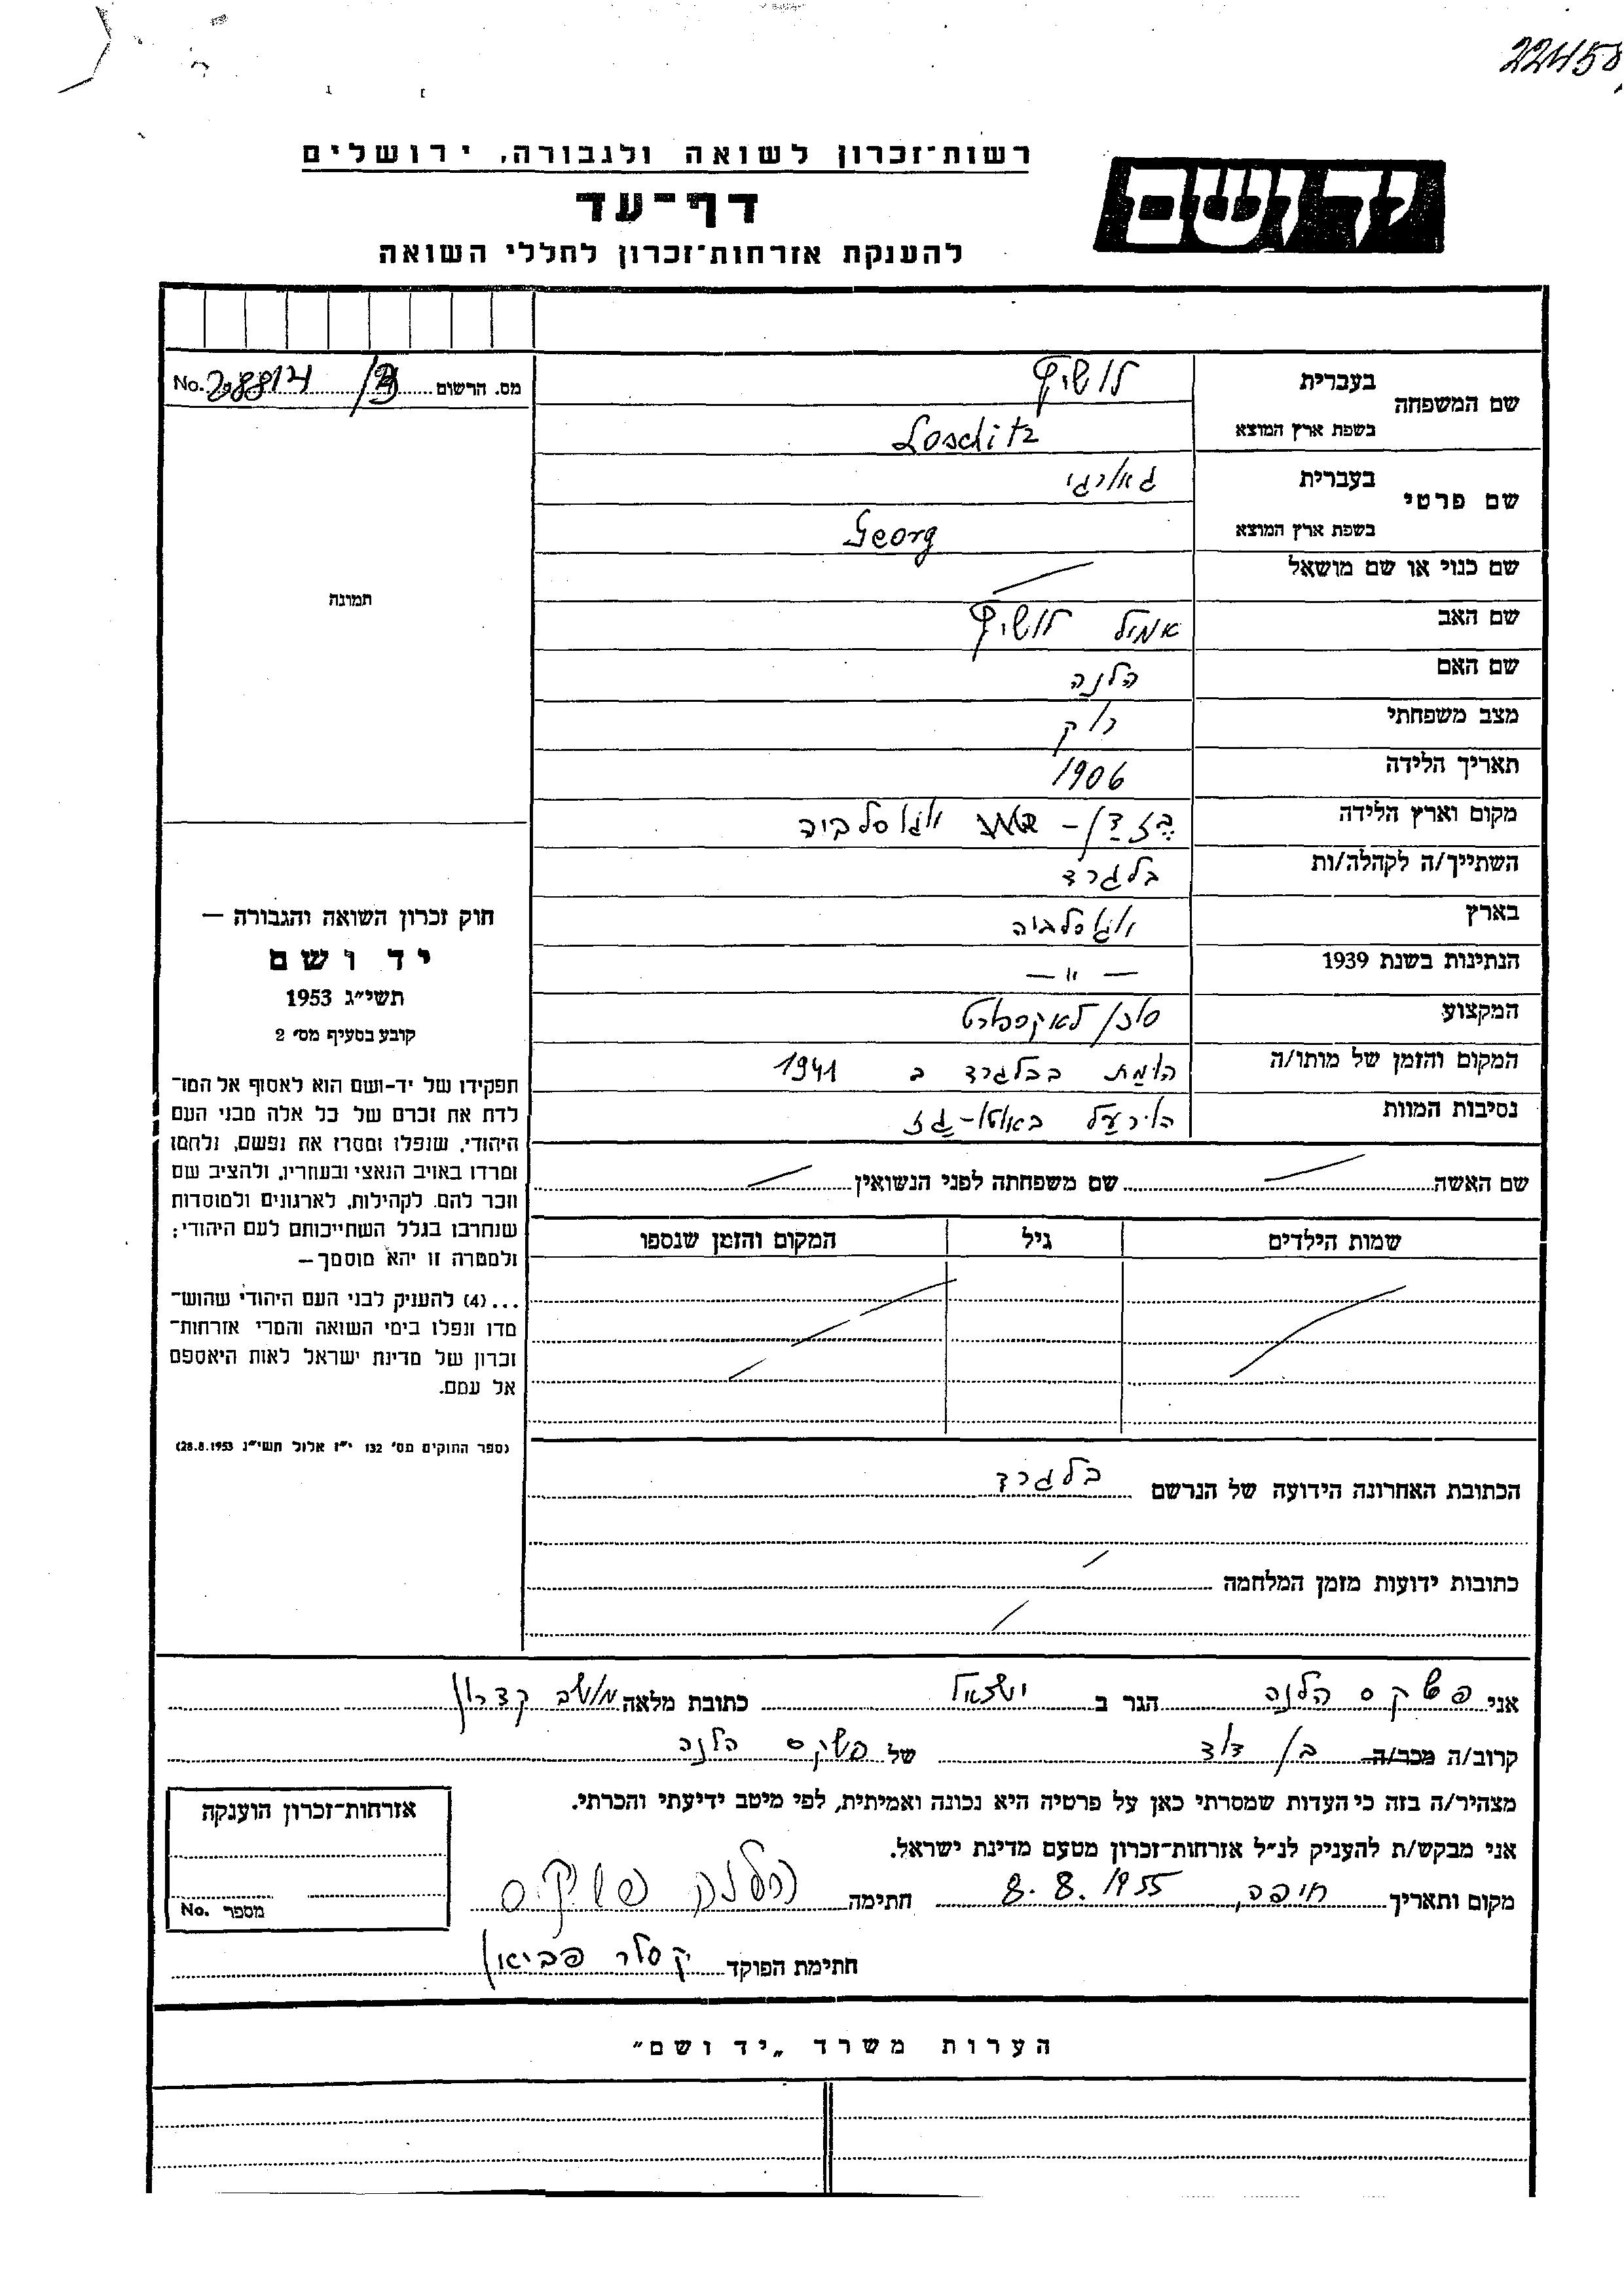 22458
רשות־זכרון לשואה ולגבורה, ירושלים
יד ושם
דף־עד
להענקת אזרחות־זכרון לחללי השואה
מס. הרשום 208814/3 No.
שם המשפחה בעברית לושיץ
בשפת ארץ המוצא Loschitz
שם פרטי בעברית גאורגי
בשפת ארץ המוצא Georg
שם כנוי או שם מושאל /
תמונה
שם האב אמיל לושיץ
שם האם הלנה
מצב משפחתי רוק
תאריך הלידה 1906
מקום וארץ הלידה בזדן - יוגוסלביה
השתייך/ה לקהלה/ות בלגרד
בארץ יוגוסלביה
הנתינות בשנת 1939 — " —
המקצוע סוכן לאקספורט
המקום והזמן של מותו/ה הומת בבלגרד ב 1941
נסיבות המוות הורעל באוטו-גז
שם האשה / שם משפחתה לפני הנשואין /
שמות הילדים גיל המקום והזמן שנספו
חוק זכרון השואה והגבורה —
יד ושם
תשי״ג 1953
קובע בסעיף מס׳ 2
תפקידו של יד-ושם הוא לאסוף אל המו־
לדת את זכרם של כל אלה מבני העם
היהודי, שנפלו ומסרו את נפשם, נלחמו
ומרדו באויב הנאצי ובעוזריו, ולהציב שם
וזכר להם, לקהילות, לארגונים ולמוסדות
שנחרבו בגלל השתייכותם לעם היהודי;
ולמטרה זו יהא מוסמך —
...(4) להעניק לבני העם היהודי שהוש־
מדו ונפלו בימי השואה והמרי אזרחות־
זכרון של מדינת ישראל לאות היאספם
אל עמם.
(ספר החוקים מס׳ 132 י״ז אלול תשי״ג 28.8.1953)
הכתובת האחרונה הידועה של הנרשם בלגרד
כתובות ידועות מזמן המלחמה /
אני פשקס הלנה הגר ב ישראל כתובת מלאה מושב קדרון
קרוב/ה מכר/ה בן דוד של פשקס הלנה
מצהיר/ה בזה כי העדות שמסרתי כאן על פרטיה היא נכונה ואמיתית, לפי מיטב ידיעתי והכרתי.
אני מבקש/ת להעניק לנ״ל אזרחות־זכרון מטעם מדינת ישראל.
מקום ותאריך חיפה, 8.8.1955 חתימה הלנה פשקס
חתימת הפוקד קסלר פביאן
אזרחות־זכרון הוענקה
מספר No.
הערות משרד „יד ושם״